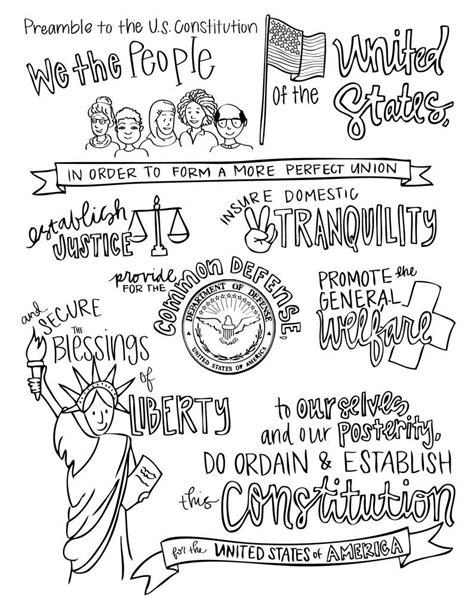 Preamble to the U.S. Constitution
We the People
of the
United
States,
IN ORDER TO FORM A MORE PERFECT UNION
establish
JUSTICE
INSURE DOMESTIC
TRANQUILITY
provide
FOR THE
COMMON DEFENSE,
DEPARTMENT OF DEFENSE
UNITED STATES OF AMERICA
PROMOTE the
GENERAL
Welfare
and
SECURE
THE
Blessings
of
LIBERTY
to ourselves
and our Posterity,
DO ORDAIN & ESTABLISH
this Constitution
for the UNITED STATES of AMERICA